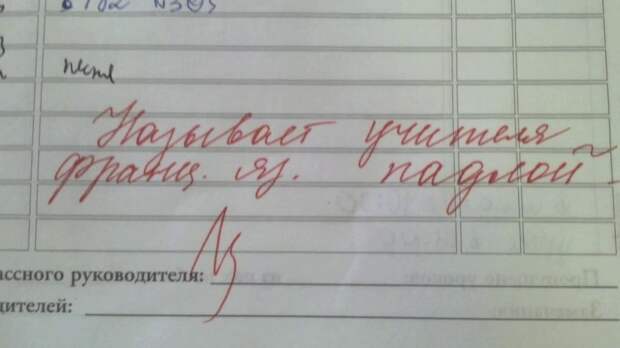 Называет учителя
франц. яз. падлой
ассного руководителя:
дителей: